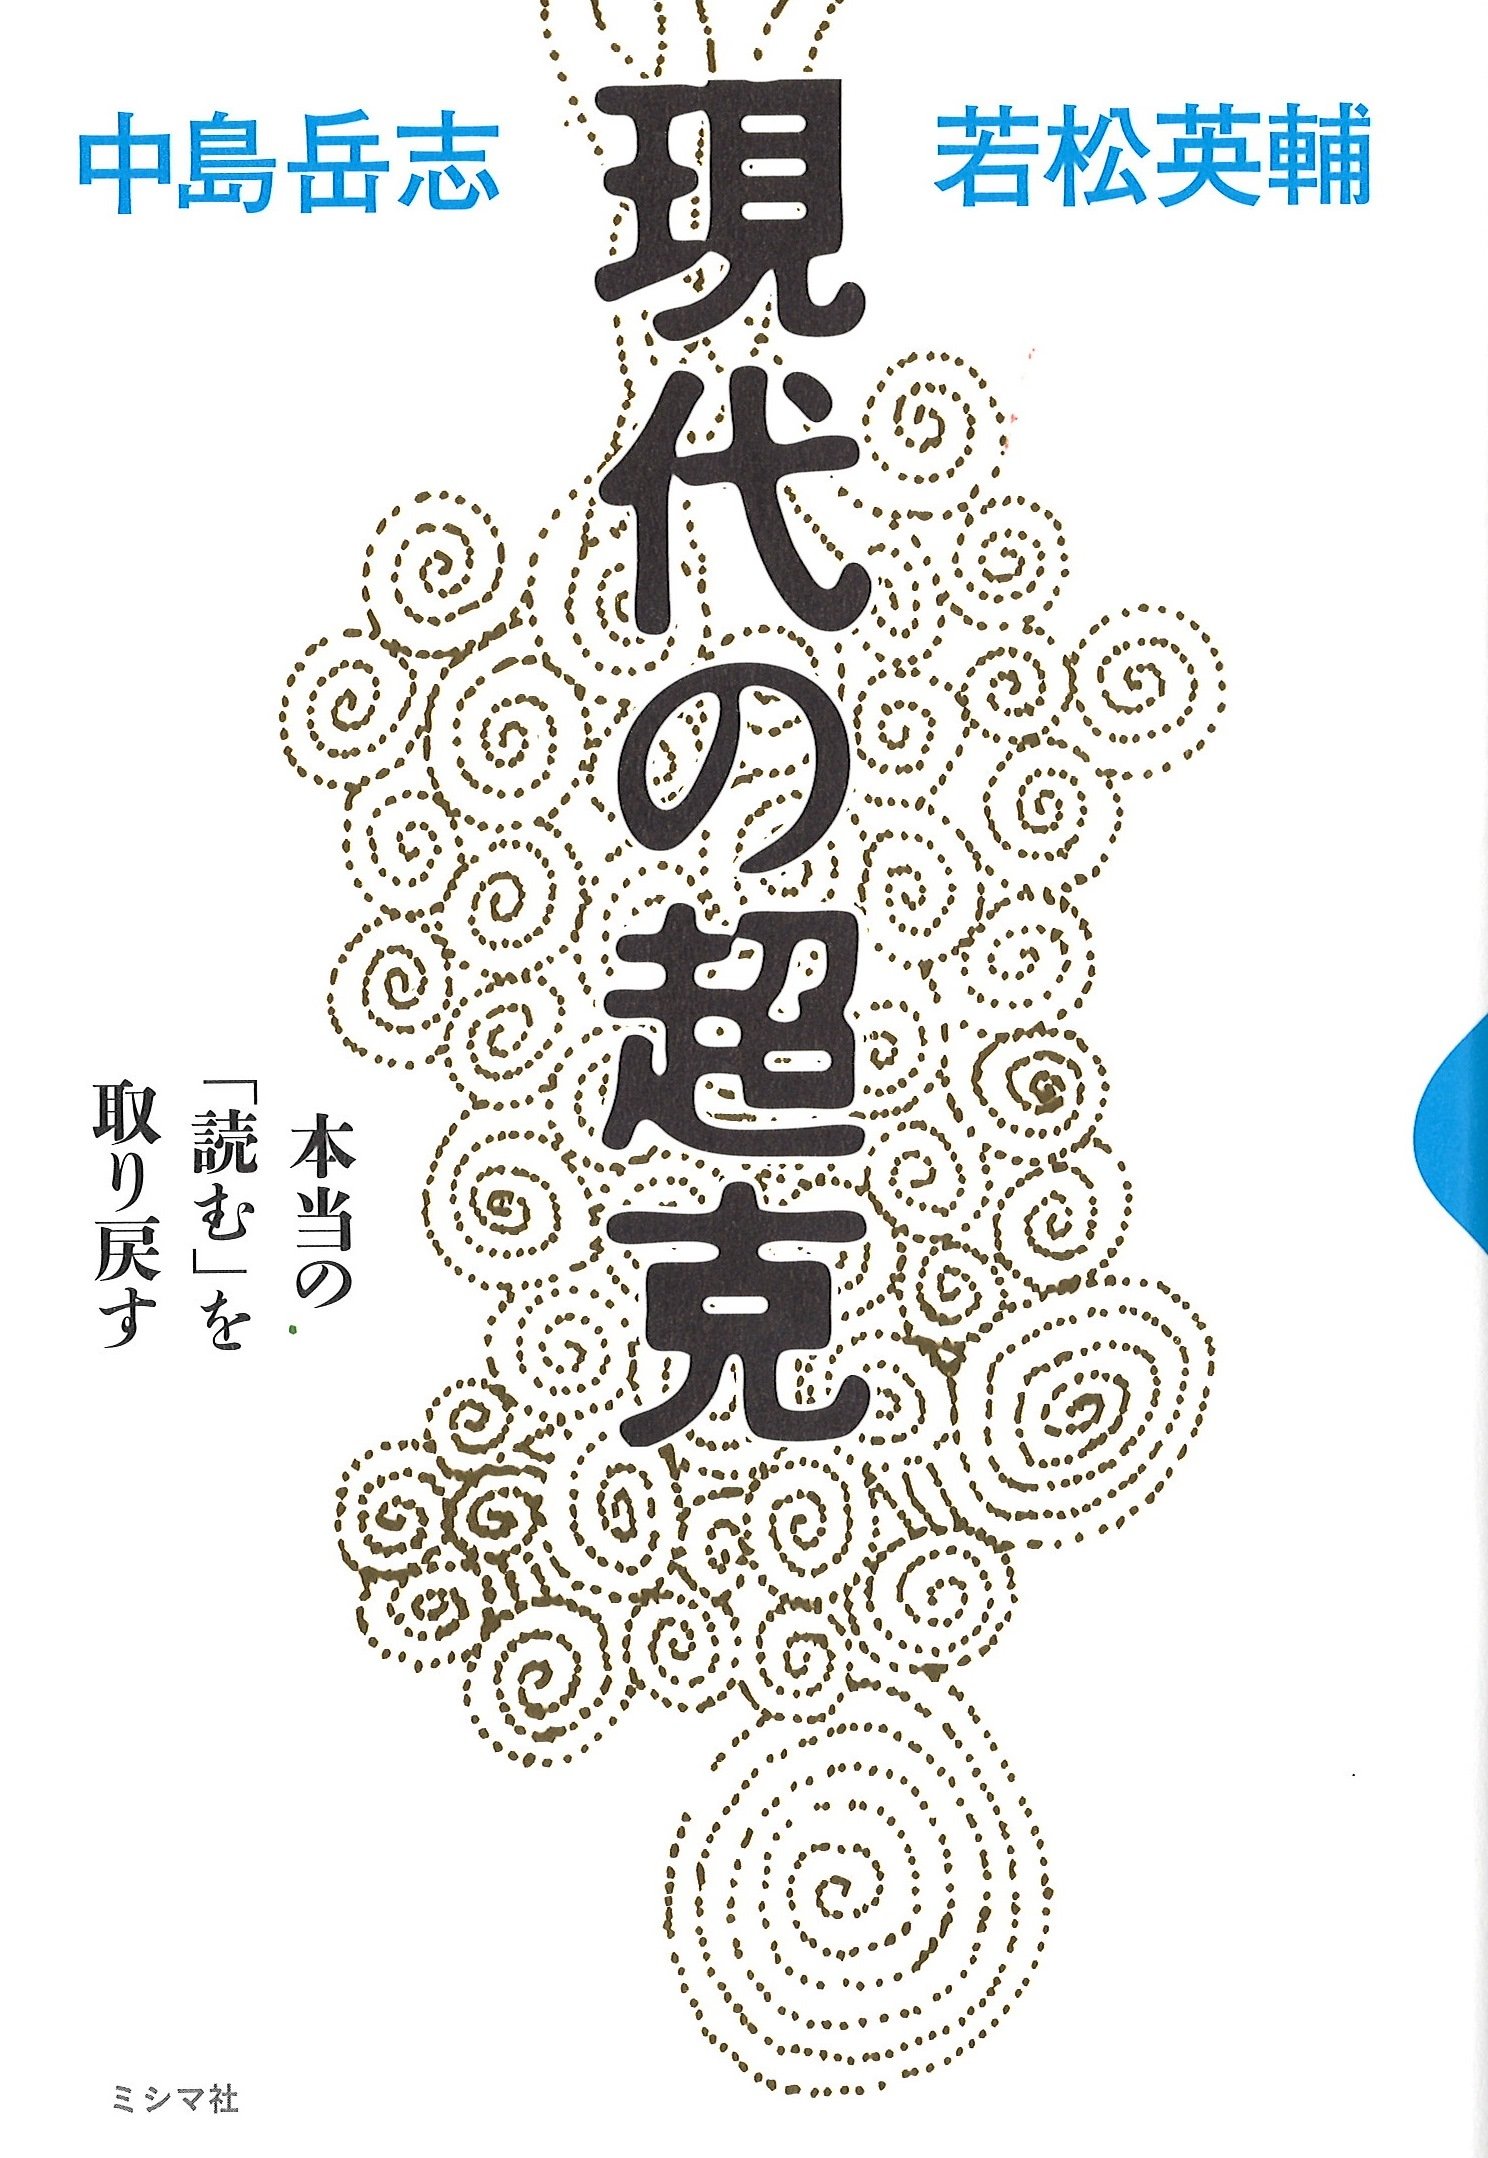 中島岳志
若松英輔
現代の超克
本当の
「読む」を
取り戻す
ミシマ社